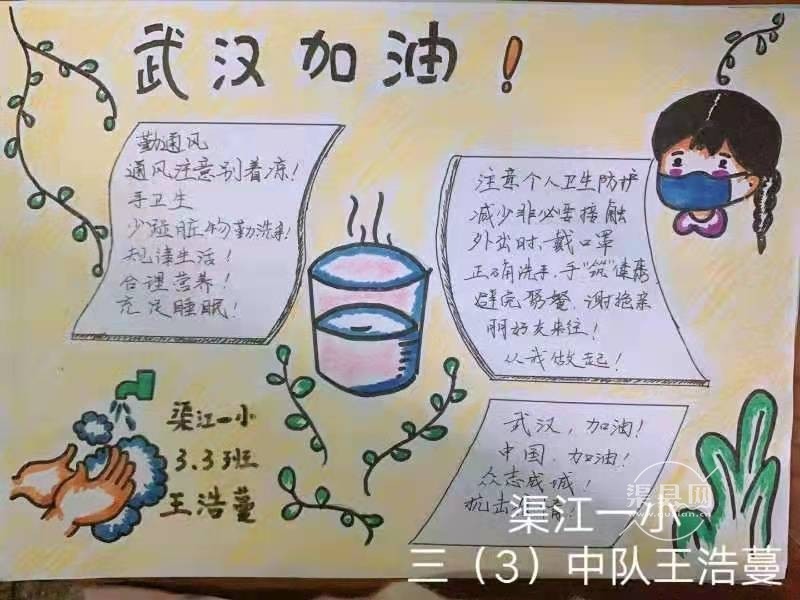 武汉加油！
勤通风
通风注意别着凉！
手卫生
少碰脏物勤洗手！
规律生活！
合理营养！
充足睡眠！
注意个人卫生防护
减少非必要接触
外出时、戴口罩
正确洗手、手“筑”健康
避免聚餐、谢绝亲
朋好友来往！
从我做起！
渠江一小
3.3班
王浩蔓
武汉，加油！
中国、加油！
众志成城！
抗击
渠县网
渠江一小
三（3）中队王浩蔓